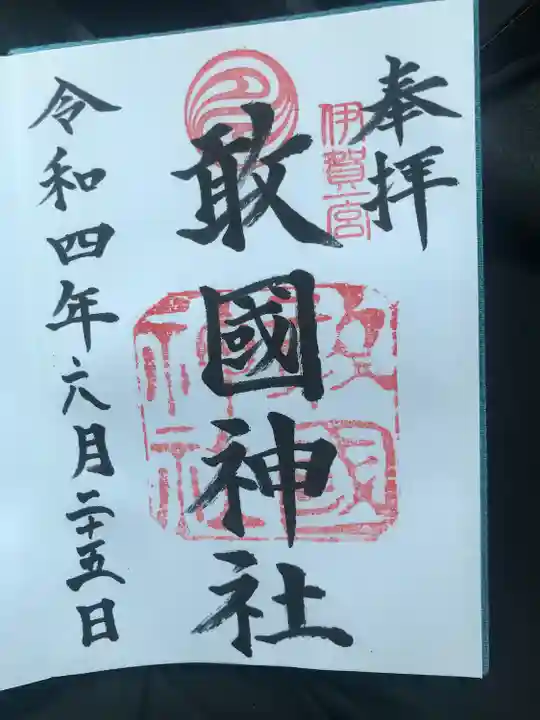 奉拝
伊賀一宮
敢國神社
敢國神社
令和四年六月二十五日